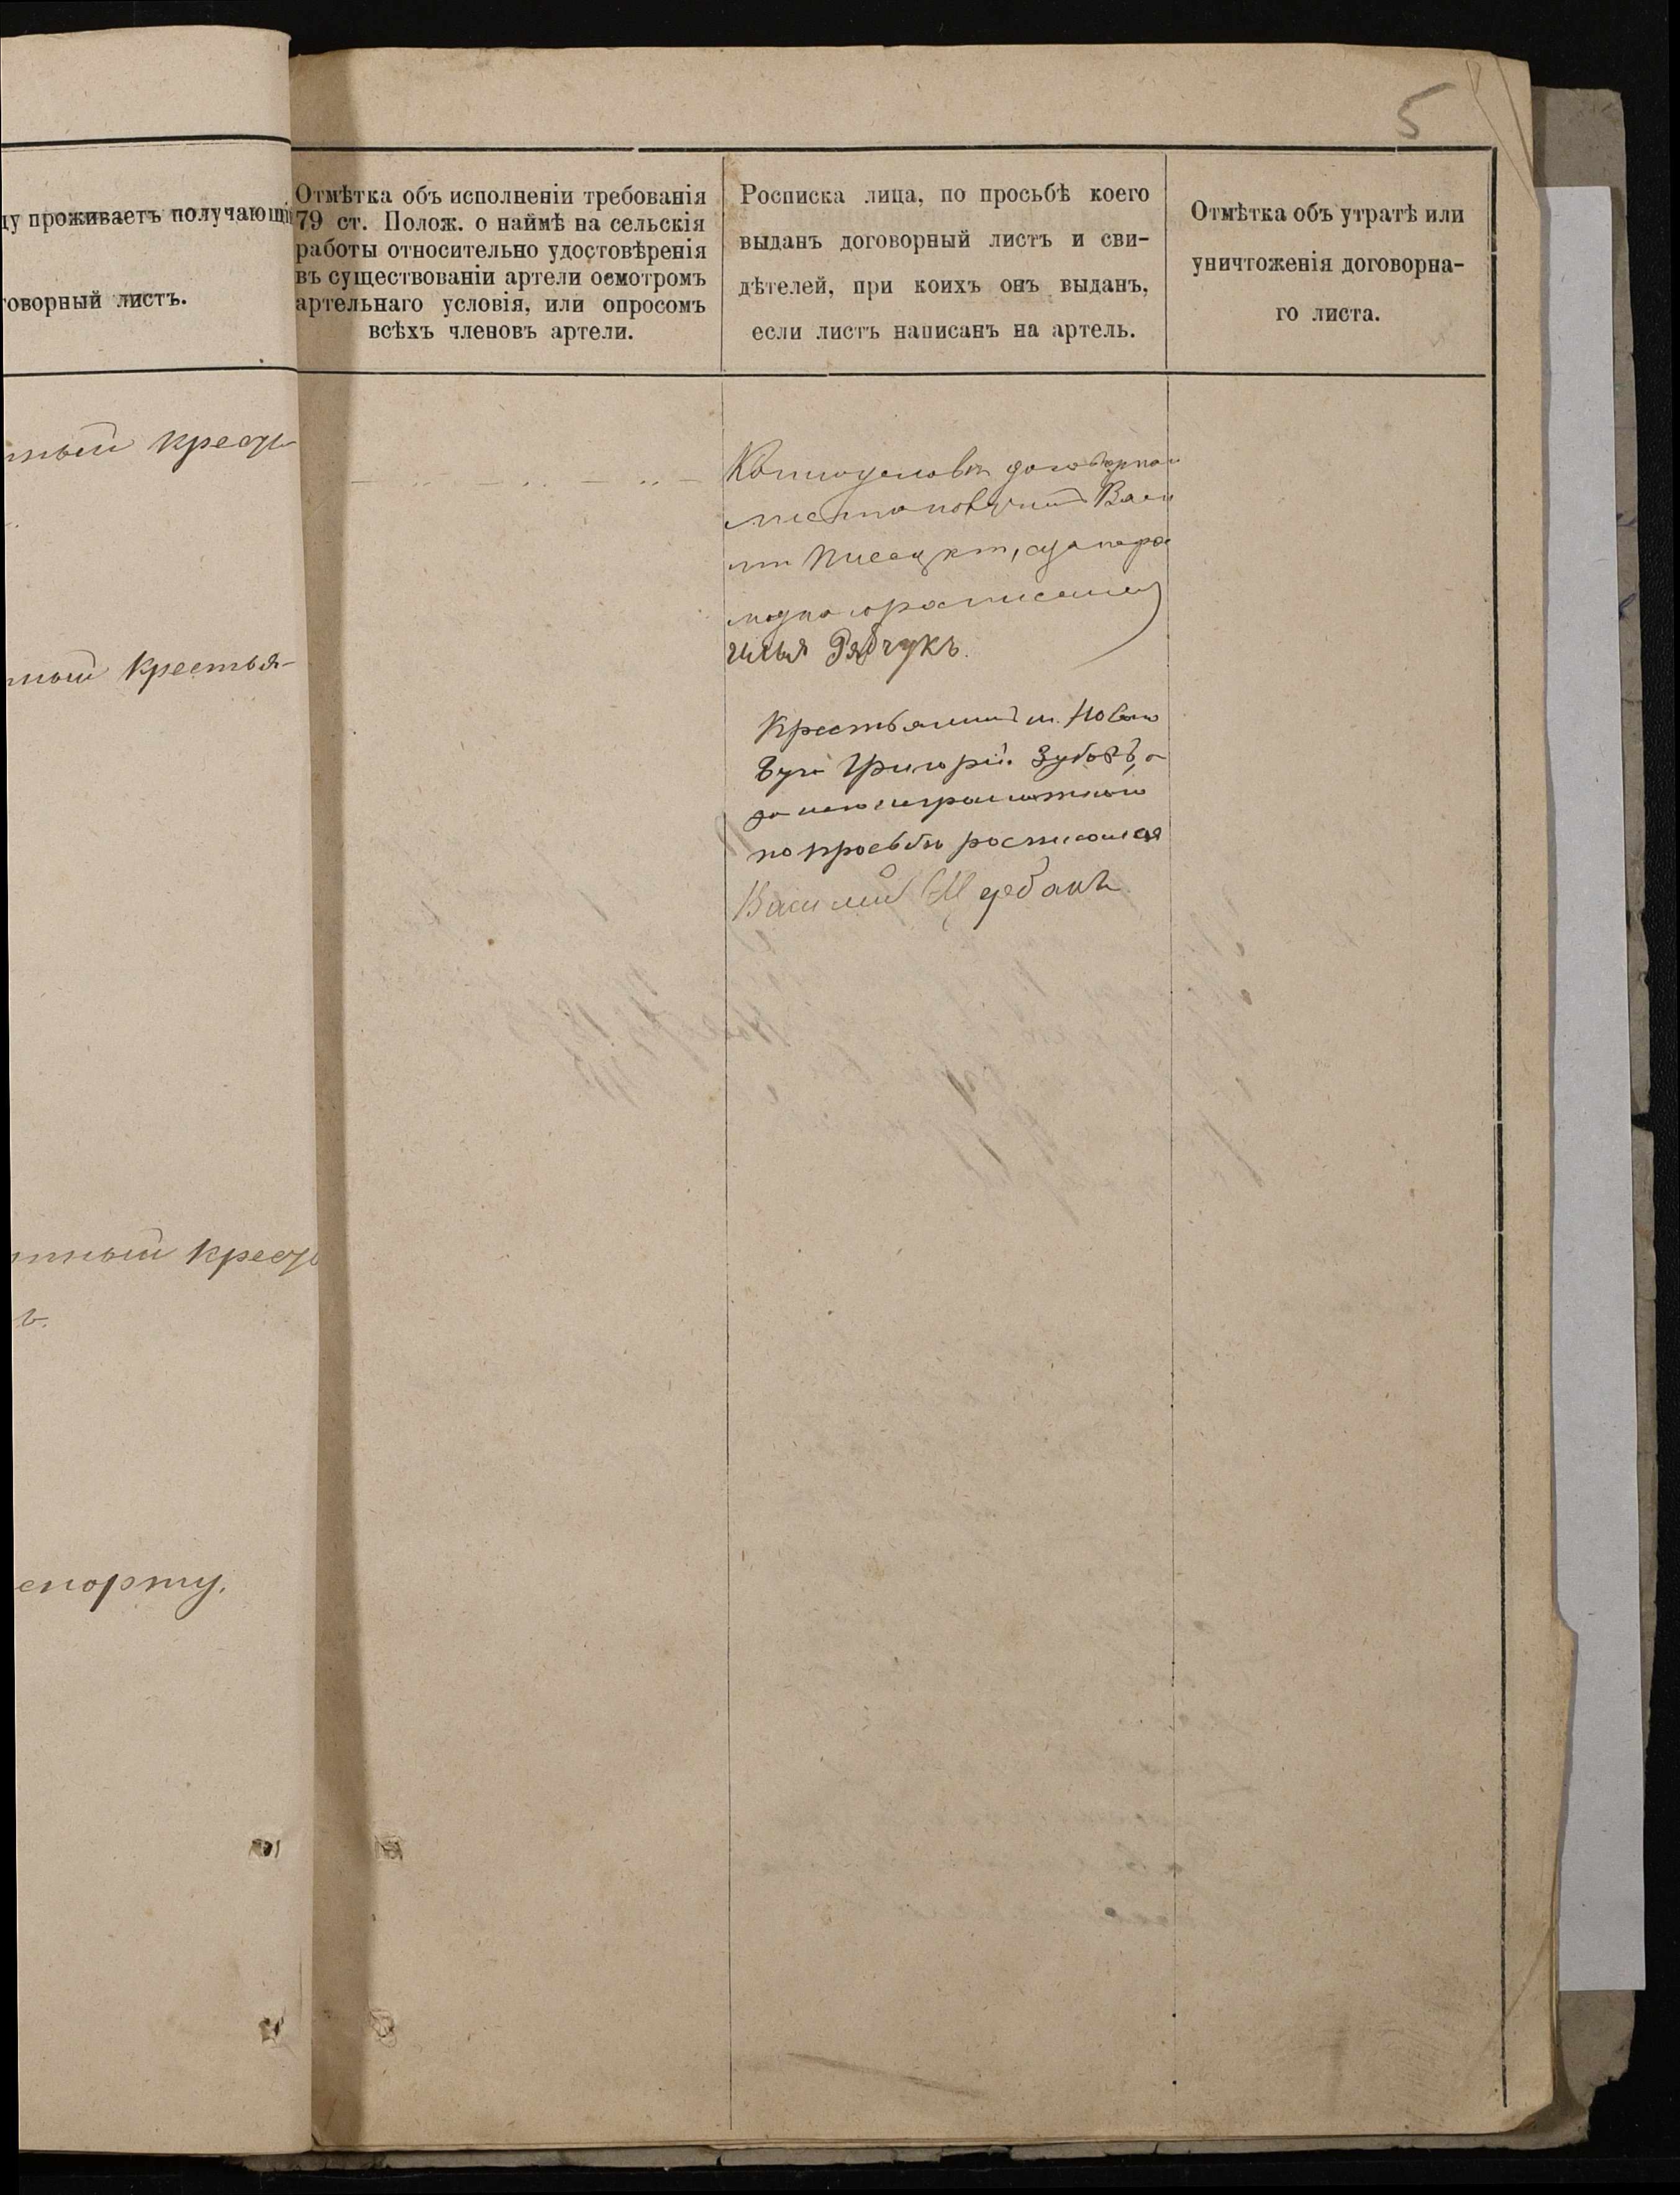 5
ду проживаетъ получающі
говорный листъ.
Отмѣтка объ исполненіи требованія
79 ст. Полож. о наймѣ на сельскія
работы относительно удостовѣренія
въ существованіи артели осмотромъ
артельнаго условія, или опросомъ
всѣхъ членовъ артели.
Росписка лица, по просьбѣ коего
выданъ договорный листъ и сви-
дѣтелей, при коихъ онъ выданъ,
если листъ написанъ на артель.
Отмѣтка объ утратѣ или
уничтоженія договорна-
го листа.
ный кресть
ный крестья-
нный кресть
ъ.
спорту.
получилъ Васи
Илья Рябчукъ.
Крестьянинъ м. Новаго
Буга Григорій Зубовъ, а
за него неграмотнаго
по просьбѣ росписался
Василий Щербань